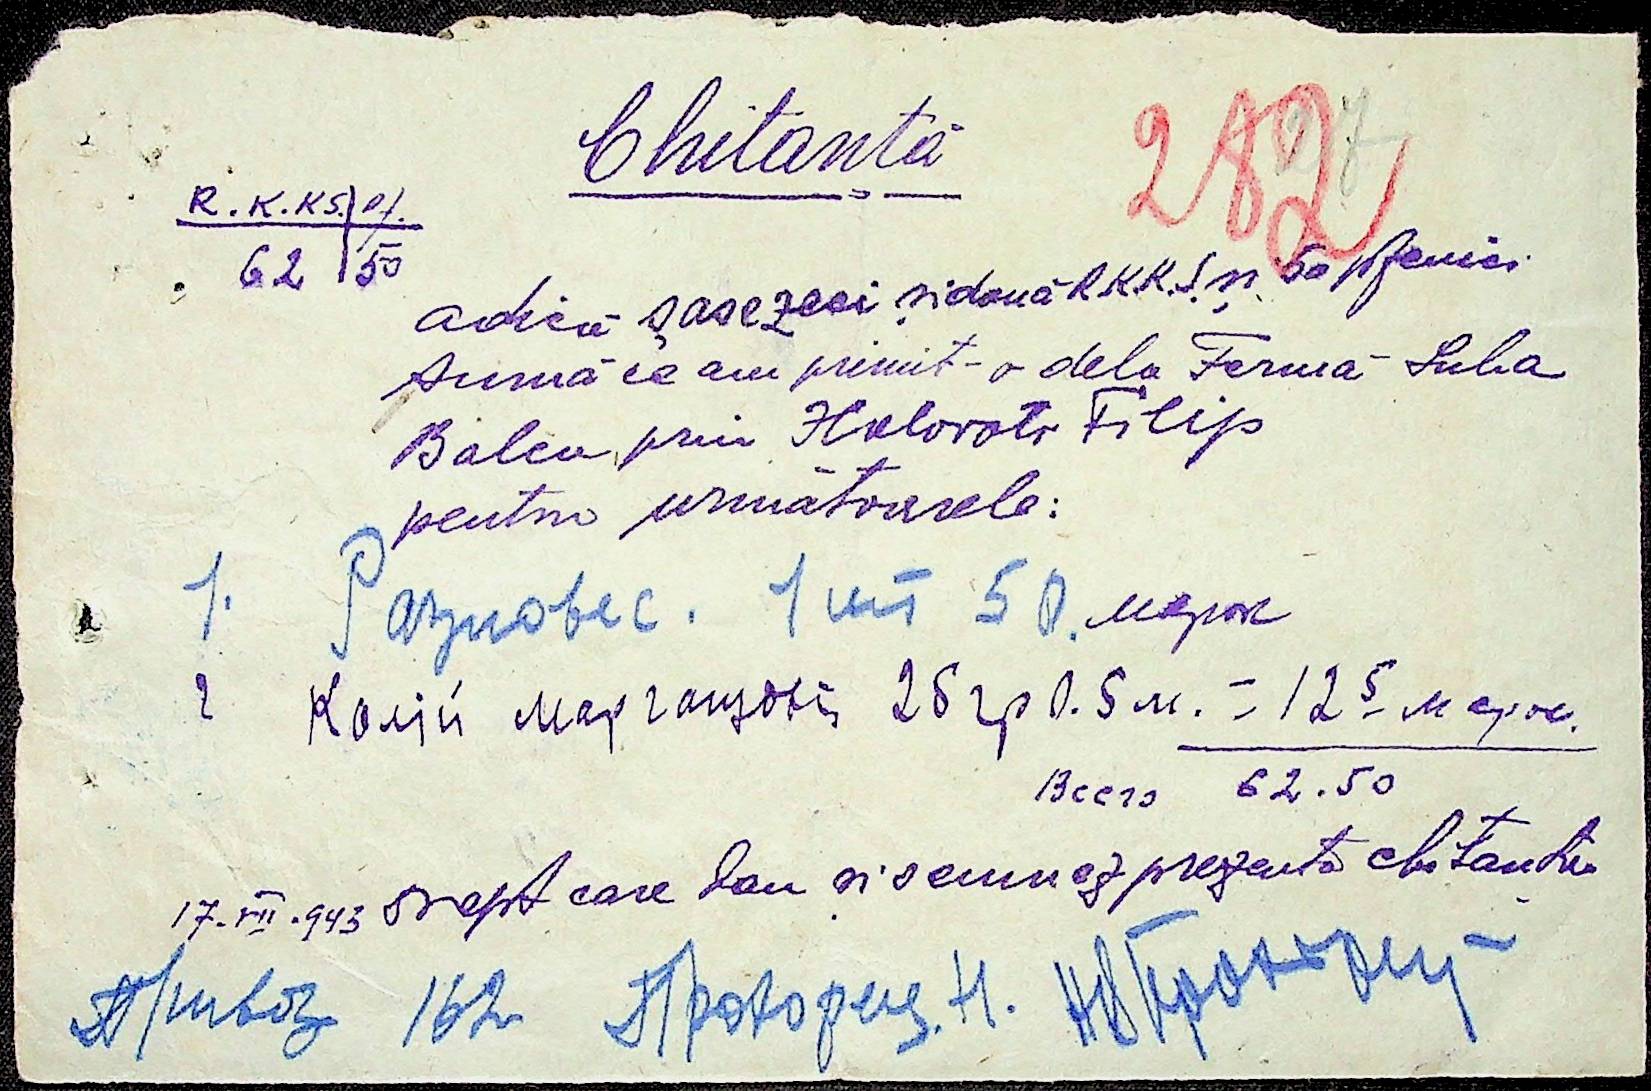 Chitanță
282
R.K.KS. pf.
62 50
adică șasezeci și două R.K.K.S. și 50 pfenici
sumă ce am primit-o dela Fermă Suha
Balca prin Holovate Filip
pentru următoarele:
1. Разновес. 1 шт 50. марок
2 Калій марганцовій 25 гр 0.5 м. = 12 5 марок.
Всего 62.50
17.VII.943 Drept care dau și semnez prezenta chitanță
Привоз 162 Прохорец. Н.